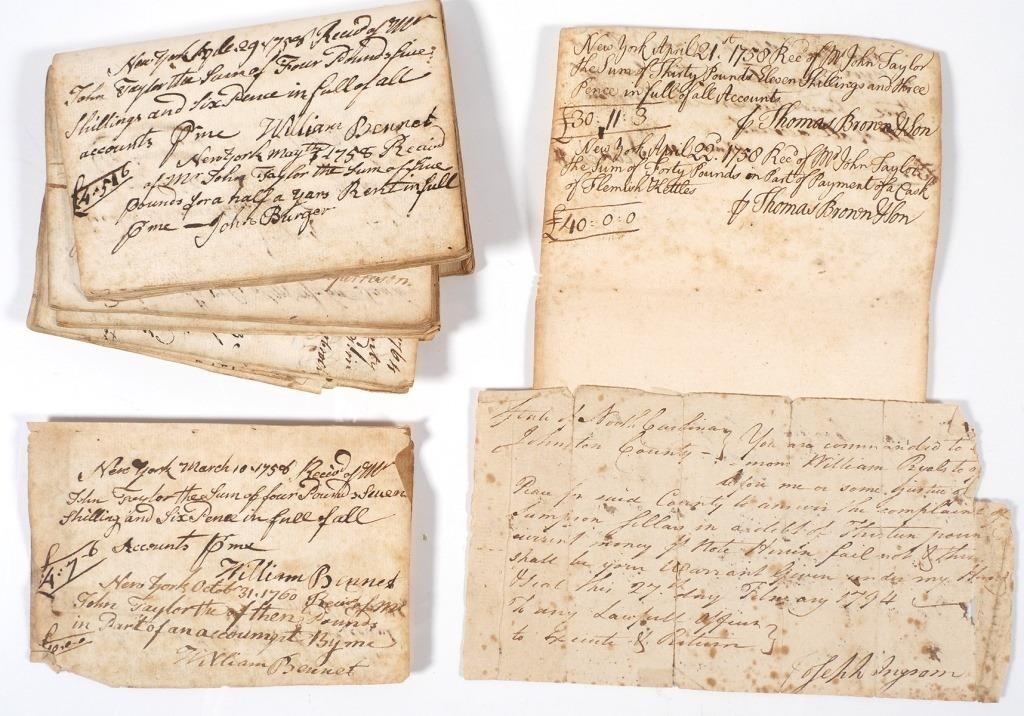 New York 29 1758 Recd of Mr
John Taylor the Sum of Four Pounds five
Shillings and Six Pence in full of all
accounts ⅌ me William Bennet
£4:5:6
New York May 1758 Received
of Mr John Taylor the Sum of five
pounds for a half a years Rent in full
⅌ me — John Burger
New York April 21st 1758 Rec of Mr John Taylor
the Sum of Thirty Pounds Eleven Shillings and three
Pence in full of all Accounts
£30:11:3 ⅌ Thomas Brown & Son
New York April 22d 1758 Rec of Mr John Taylor
the Sum of Forty Pounds on Part of Payment of a Cask
of Flemish Kettles
£40:0:0 ⅌ Thomas Brown & Son
New York March 10 1758 Receivd of Mr
John Taylor the Sum of four Pounds Seven
Shilling and Six Pence in full of all
Accounts ⅌ me
£4:7:6
William Bennet
New York Octob 31, 1760 Receivd of Mr
John Taylor the of then Pounds
in Part of an accoumpt By me
William Bennet
State of North Carolina
Johnston County } You are commanded to
William
me or some Justice of
Peace for said County to answer the complaint
Sampson Sellars in a debt of
current money Note Herein fail not & this
shall be your Warrant Given under my Hand
& Seal this 27 day February 1794
To any Lawfull Officer
to Execute & Return }
Joseph Ingram